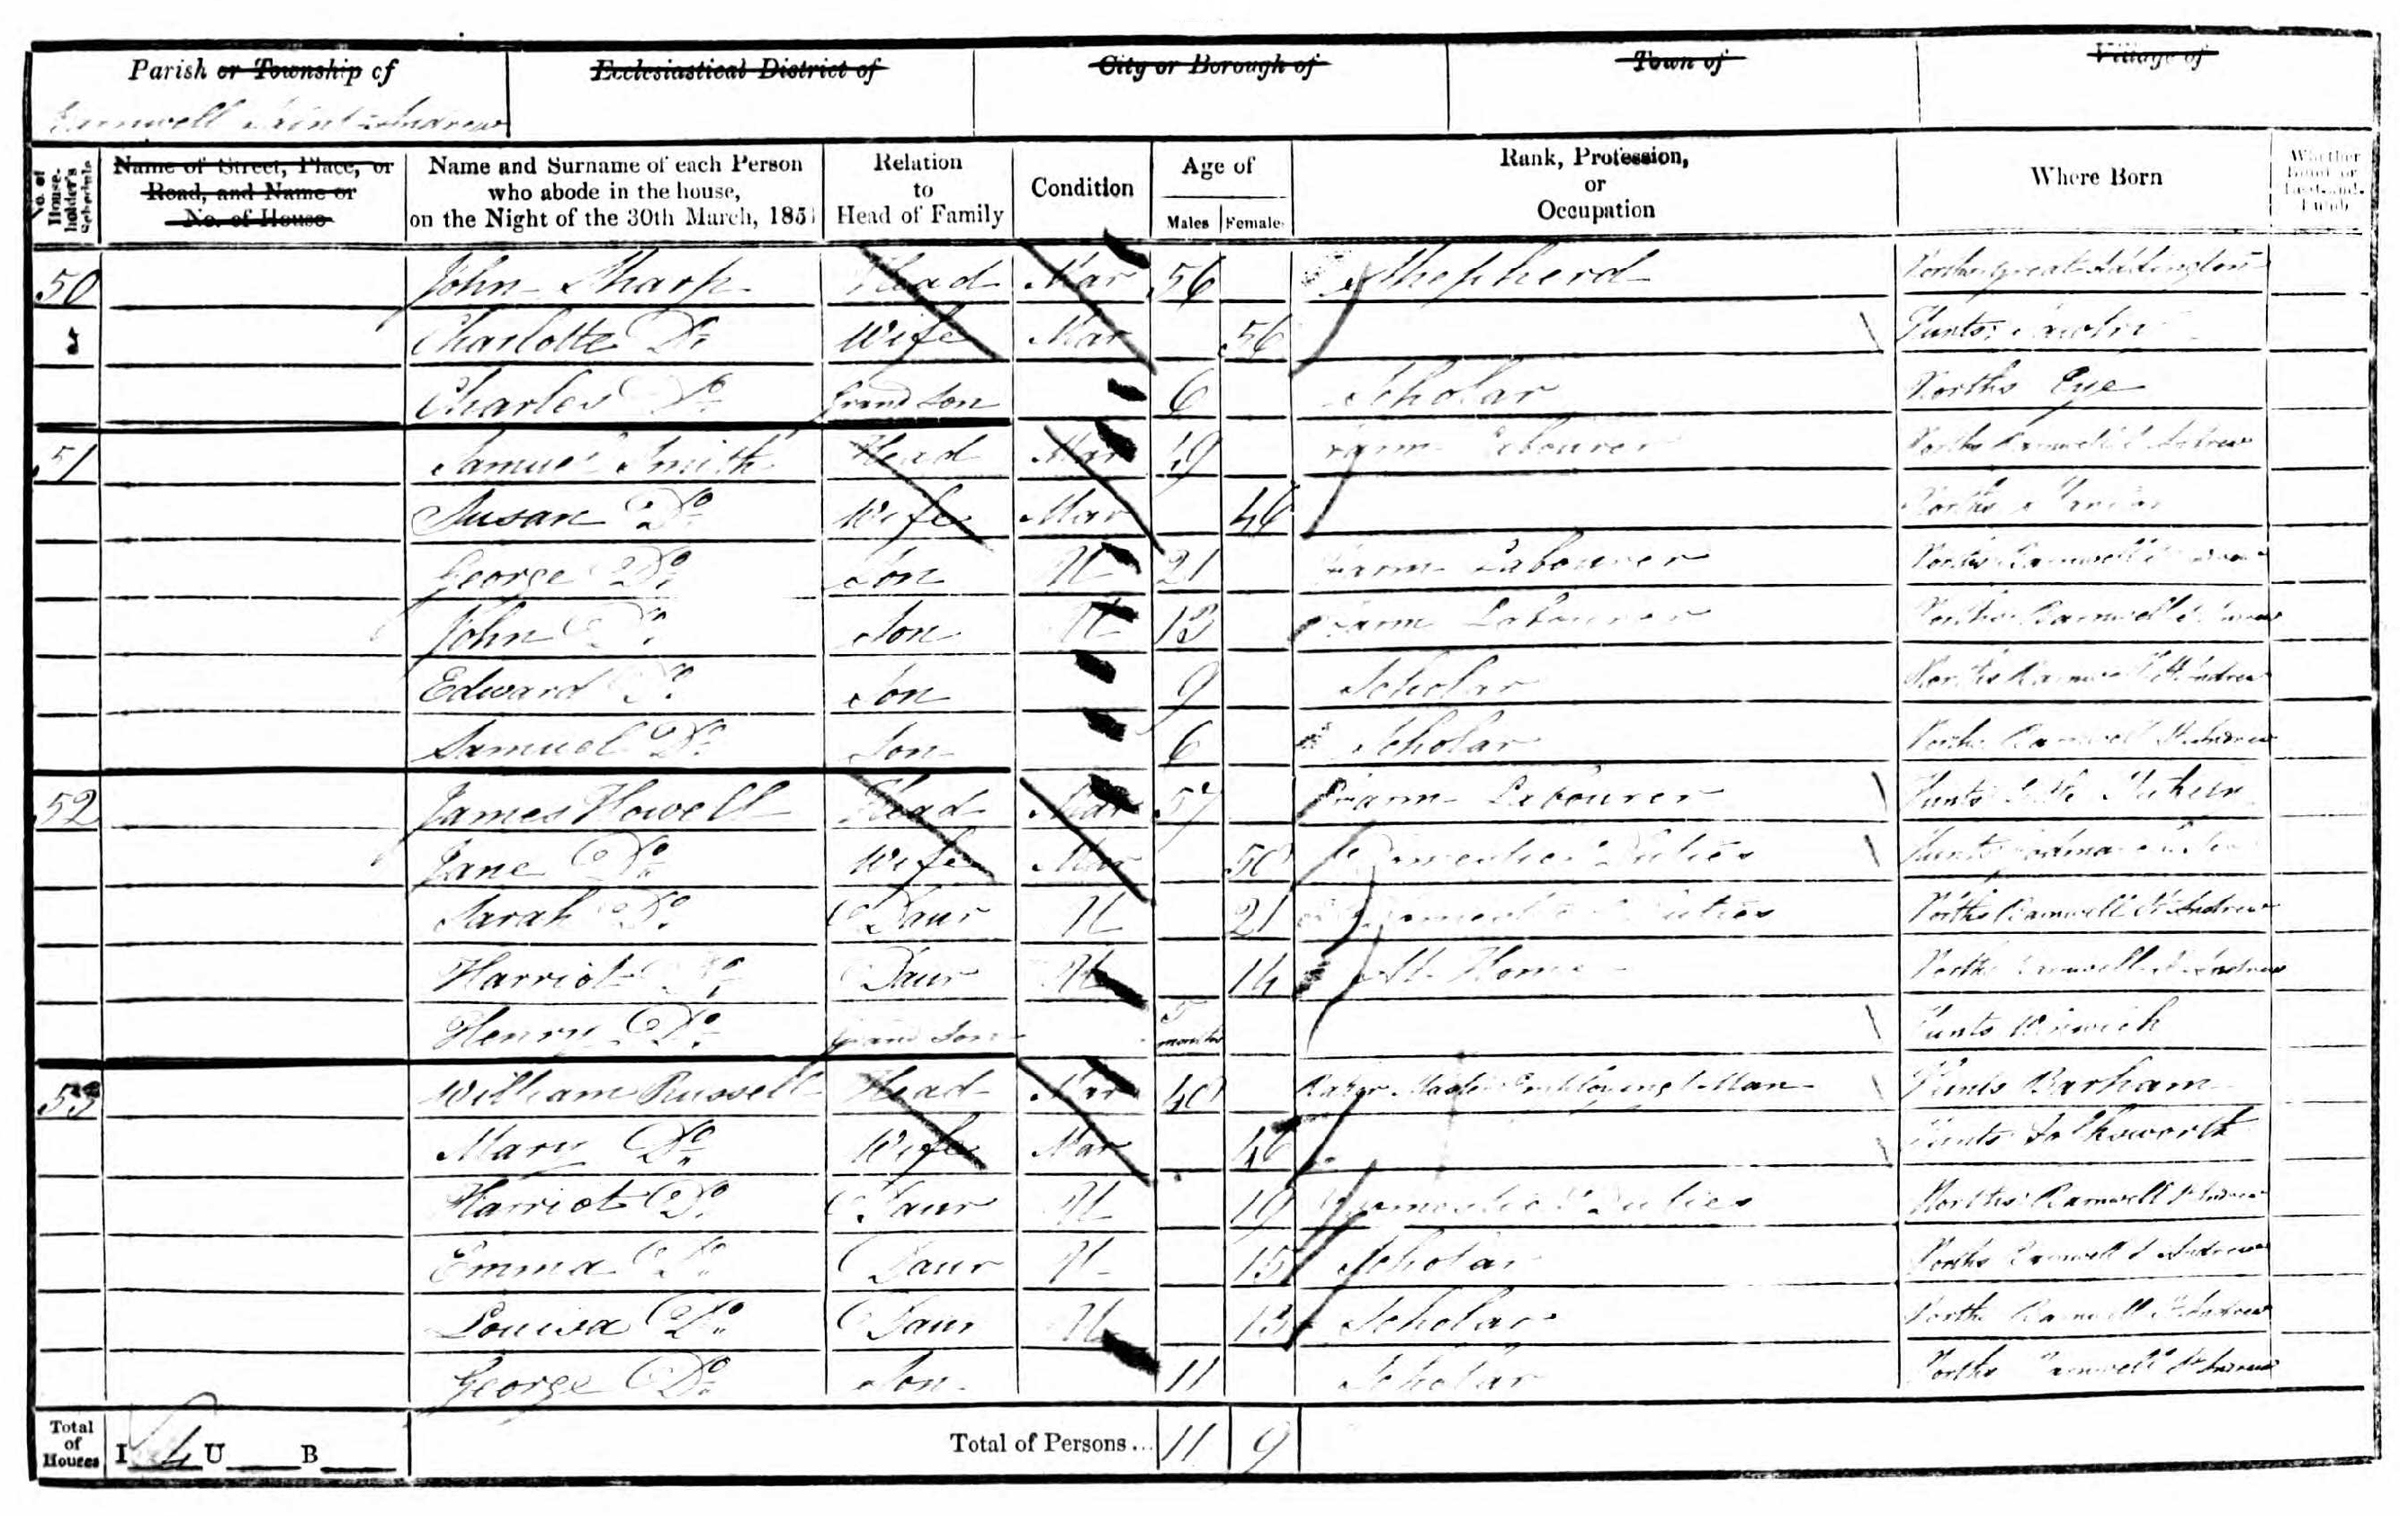 Parish or Township of
Ecclesiastical District of
City or Borough of
Town of
Village of
Barnwell Saint Andrew
No. of House-holder's Schedule
Name of Street, Place, or Road, and Name or No. of House
Name and Surname of each Person who abode in the house, on the Night of the 30th March, 1851
Relation to Head of Family
Condition
Age of
Males Females
Rank, Profession, or Occupation
Where Born
Whether Blind or Deaf-and-Dumb
50 John Sharp Head Mar 56 Shepherd Norths Great Addington
Charlotte Do Wife Mar 56 Hunts
Charles Do Grand Son 6 Scholar Norths Eye
51 Samuel Smith Head Mar 49 Farm Labourer Norths Barnwell St Andrew
Susan Do Wife Mar 46 Norths
George Do Son U 21 Farm Labourer Norths Barnwell St Andrew
John Do Son U 13 Farm Labourer Norths Barnwell St Andrew
Edward Do Son 9 Scholar Norths Barnwell St Andrew
Samuel Do Son 6 Scholar Norths Barnwell St Andrew
52 James Howell Head Mar 57 Farm Labourer Hunts
Jane Do Wife Mar 50 Domestic Duties Hunts
Sarah Do Daur U 21 Domestic Duties Norths Barnwell St Andrew
Harriot Do Daur U 14 At Home Norths Barnwell St Andrew
Henry Do Grand Son 5 months Hunts Winwick
53 William Russell Head Mar 40 Baker Master Employing 1 Man Hunts Barham
Mary Do Wife Mar 46 Hunts Folksworth
Harriot Do Daur U 19 Domestic Duties Norths Barnwell St Andrew
Emma Do Daur U 15 Scholar Norths Barnwell St Andrew
Louisa Do Daur U 13 Scholar Norths Barnwell St Andrew
George Do Son 11 Scholar Norths Barnwell St Andrew
Total of Houses I 4 U B Total of Persons... 11 9